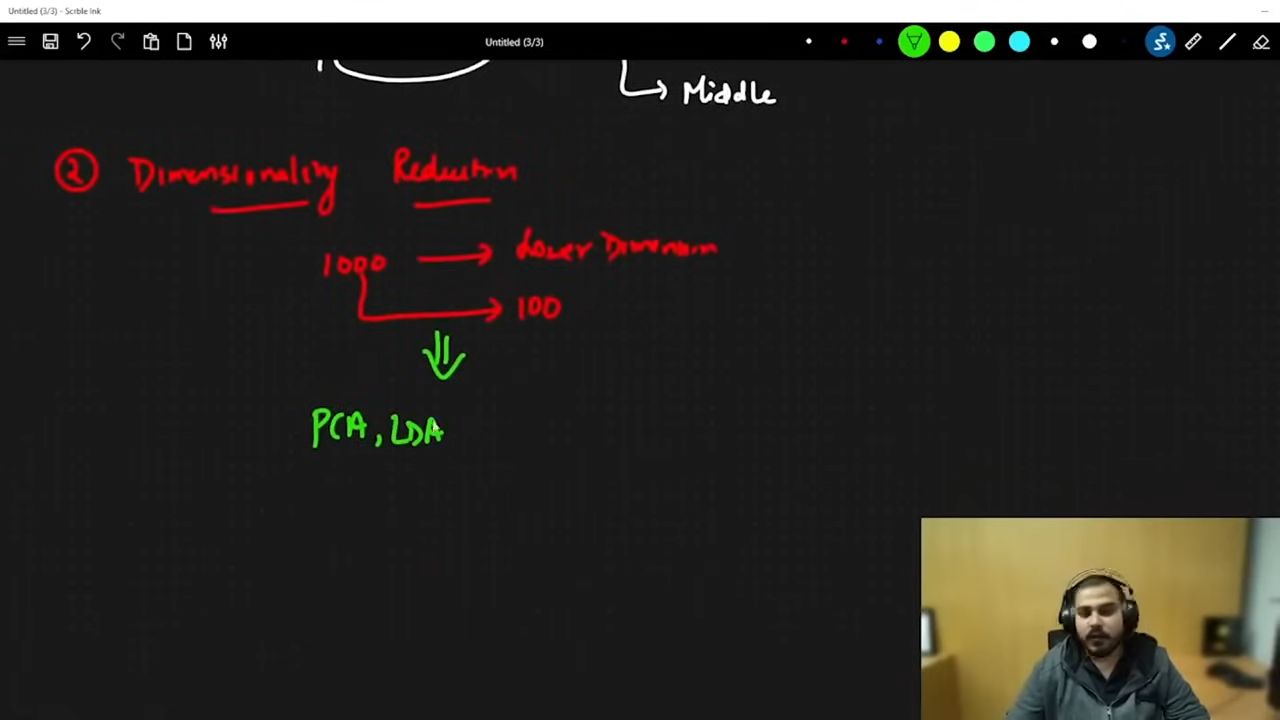 Untitled (3/3) - Scrble Ink
Untitled (3/3)
Middle
② Dimensionality Reduction
1000 → Lower Dimension
→ 100
PCA, LDA